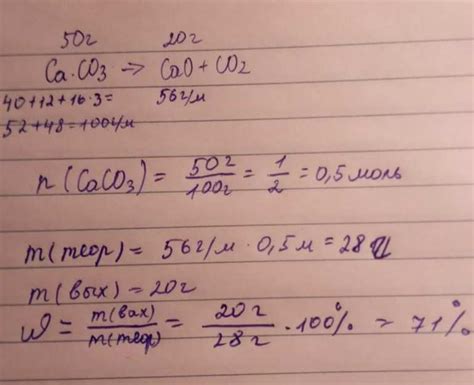 50г 20г
Ca·CO3 → CaO + CO2
40+12+16·3= 56г/м
52+48=100г/м
n(CaCO3) = 50г/100г = 1/2 = 0,5 моль
m(теор) = 56г/м · 0,5м = 28
m(вых) = 20г
ω = m(вах)/m(теор) = 20г/28г · 100% = 71%